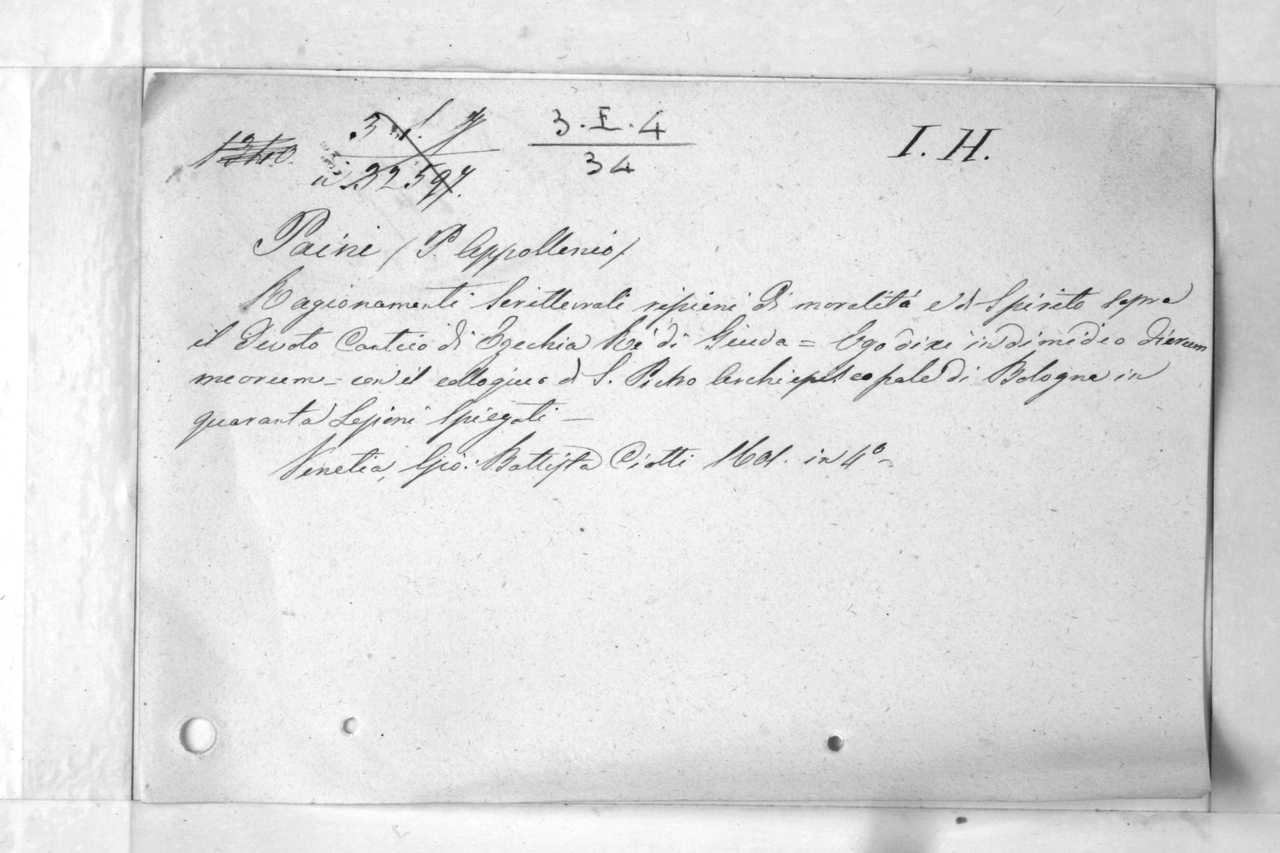 3.E.4 I. H.
34
Paini (P. Appollenio)
Ragionamenti Scritturali ripieni di moralità e di Spirito sopra
il devoto Cantico di Ezechia Re di Giuda = Ego dixi in dimidio dierum
meorum = con il colloquio d S. Pietro Archiepiscopale di Bologna in
quaranta Lezioni Spiegati —
Venetia, Gio: Battista Ciotti in 4°